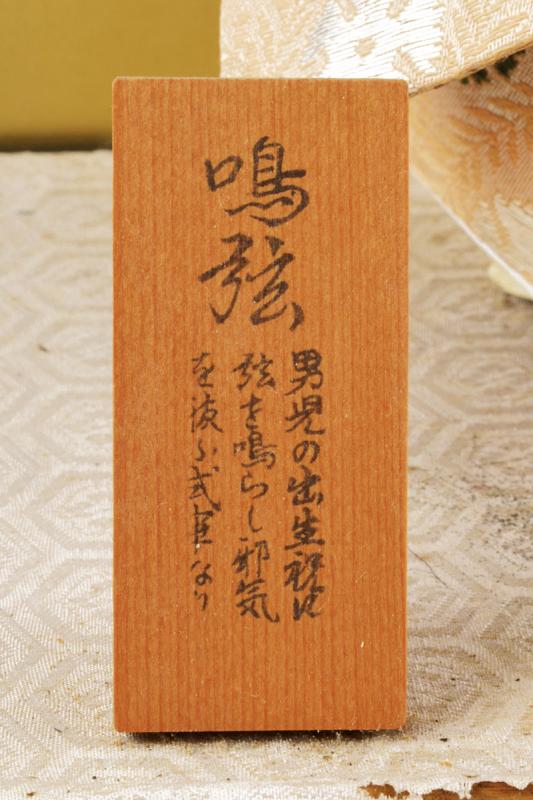 鳴弦
男児の出生祝に
弦を鳴らし邪気
を祓ふ式官なり